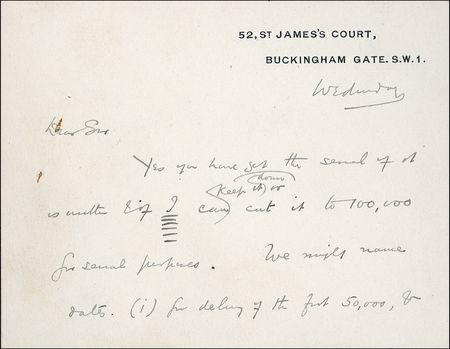 52, ST JAMES'S COURT,
BUCKINGHAM GATE. S.W.1.
Wednesday
Dear Sir
Yes you have got the serial if it
is written & if I can (keep it down) or cut it to 100,000
for serial purposes. We might name
dates. (1) for delivery of the first 50,000, &